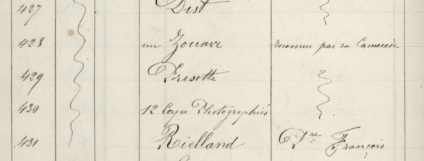 427 Dist
428 un Zouave reconnu par sa Camarade
429 Frisette
430 12 Corps Photographiés
431 Rielland François